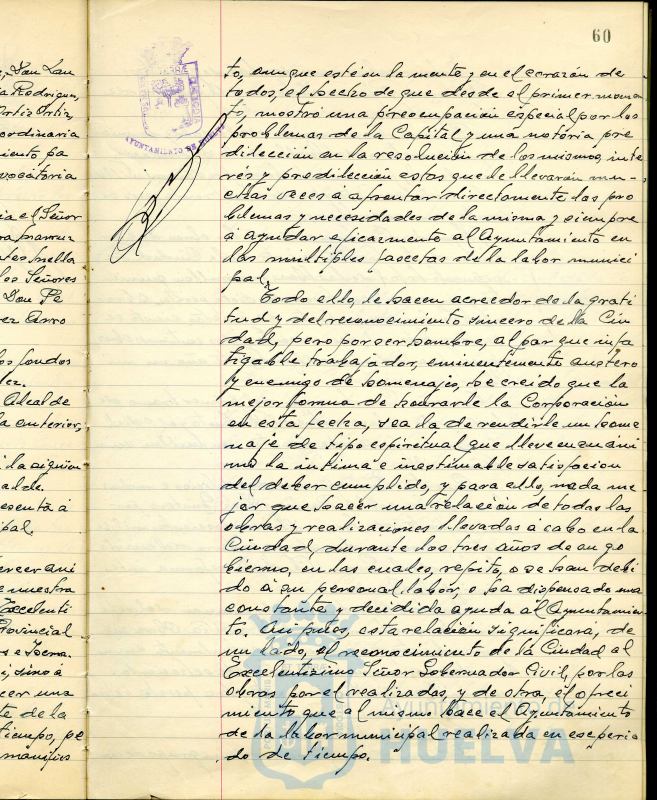 60
s, Don Lau
a Rodriguez,
Ortiz Ortiz,
oordinaria
miento pa
vocatoria
ia el Señor
los Señores
Don Pe
rez Arro
os fondos
dez.
Alcalde
la anterior,
i la siguien
alde
esenta á
ipal.
ercer ani
e nuestra
Excelenti
Provincial
s e Isern.
i, sinó á
cer una
te de la
tiempo, pe
manifies
AYUNTAMIENTO DE HUELVA
to, aunque esté en la mente y en el corazón de
todos, el hecho de que desde el primer momen
to, mostró una preocupación especial por los
problemas de la Capital y una notoria pre
dilección en la resolución de los mismos, inte
rés y predilección estas que le llevarán mu-
chas veces á afrontar directamente los pro
blemas y necesidades de la misma y siempre
á ayudar eficazmente al Ayuntamiento en
las multiples facetas de la labor munici
pal.
Todo ello, le hacen acreedor de la grati
tud y del reconocimiento sincero de la Ciu
dad, pero por ser hombre, al par que infa
tigable trabajador, eminentemente austero
y enemigo de homenajes, he creido que la
mejor forma de honrarle la Corporación
en esta fecha, sea la de rendirle un home
naje de tipo espiritual que lleve en su áni
mo la intima e inestimable satisfacion
del deber cumplido, y para ello, nada me
jor que hacer una relación de todas las
obras y realizaciones llevadas á cabo en la
Ciudad, durante los tres años de su go
bierno, en las cuales, repito, o se han debi
do á su personal labor, o ha dispensado una
constante y decidida ayuda al Ayuntamien
to. Asi pués, esta relación significará, de
un lado, el reconocimiento de la Ciudad al
Excelentisimo Señor Gobernador Civil, por las
obras por el realizadas, y de otra, el ofreci
miento que al mismo hace el Ayuntamiento
de la labor municipal realizada en ese perio
do de tiempo.
Ayuntamiento de
HUELVA